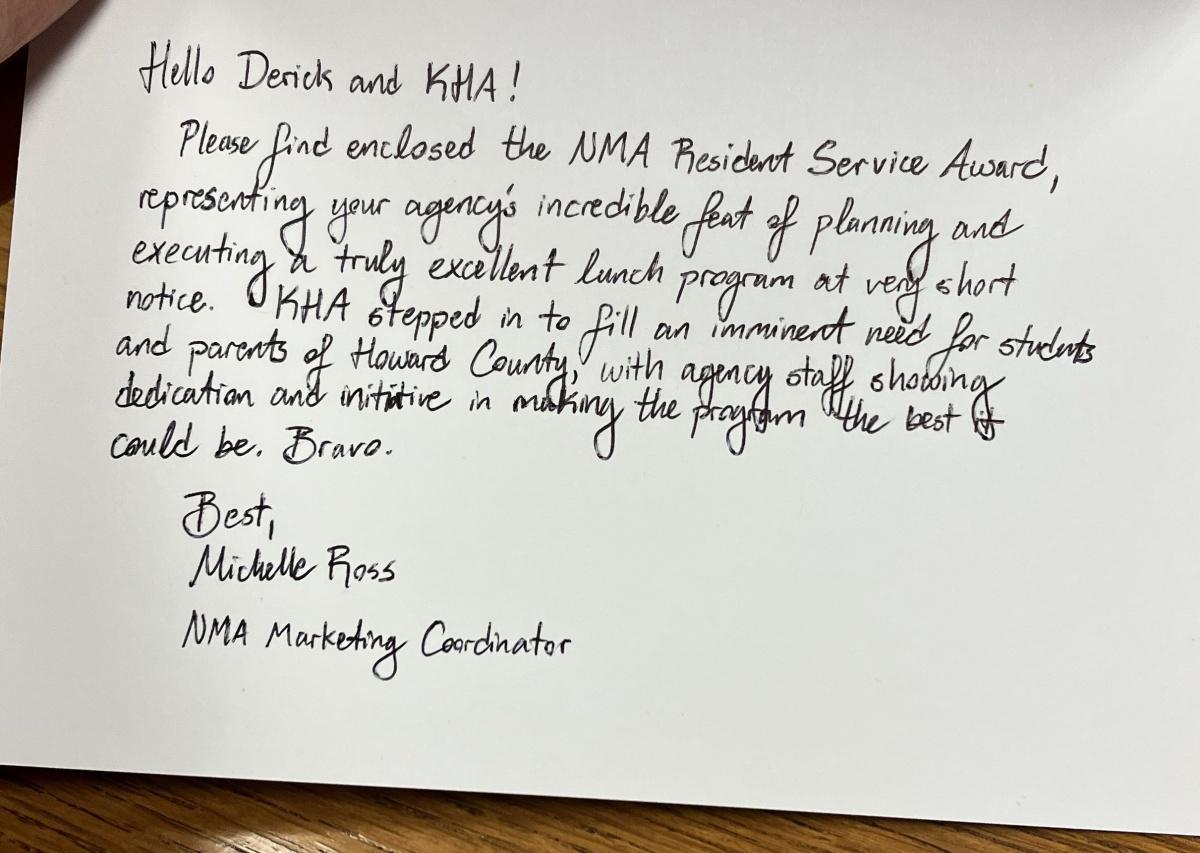 Hello Derick and KHA!
Please find enclosed the NMA Resident Service Award,
representing your agency's incredible feat of planning and
executing a truly excellent lunch program at very short
notice. KHA stepped in to fill an imminent need for students
and parents of Howard County, with agency staff showing
dedication and inititive in making the program the best it
could be. Bravo.
Best,
Michelle Ross
NMA Marketing Coordinator